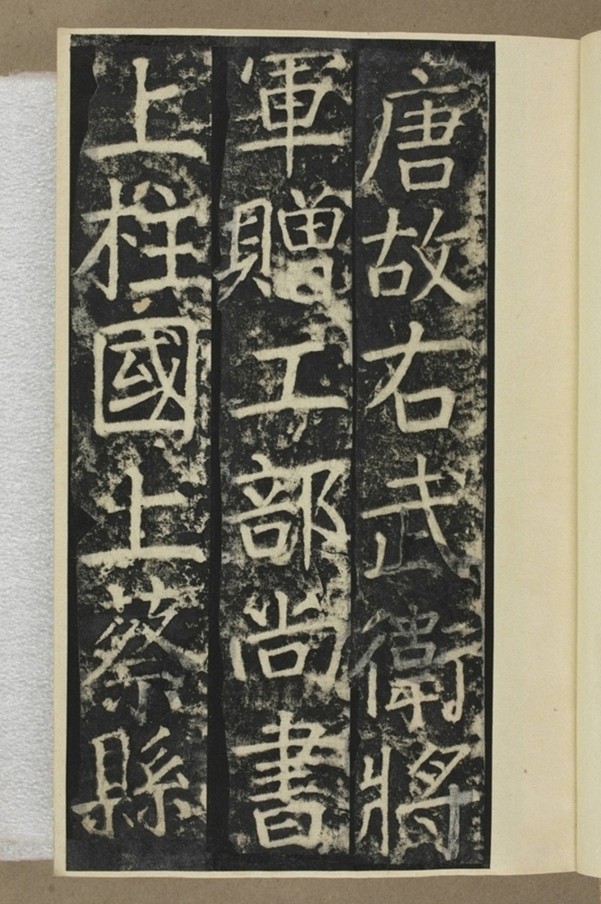 唐故右武衛將
軍贈工部尚書
上柱國上蔡縣